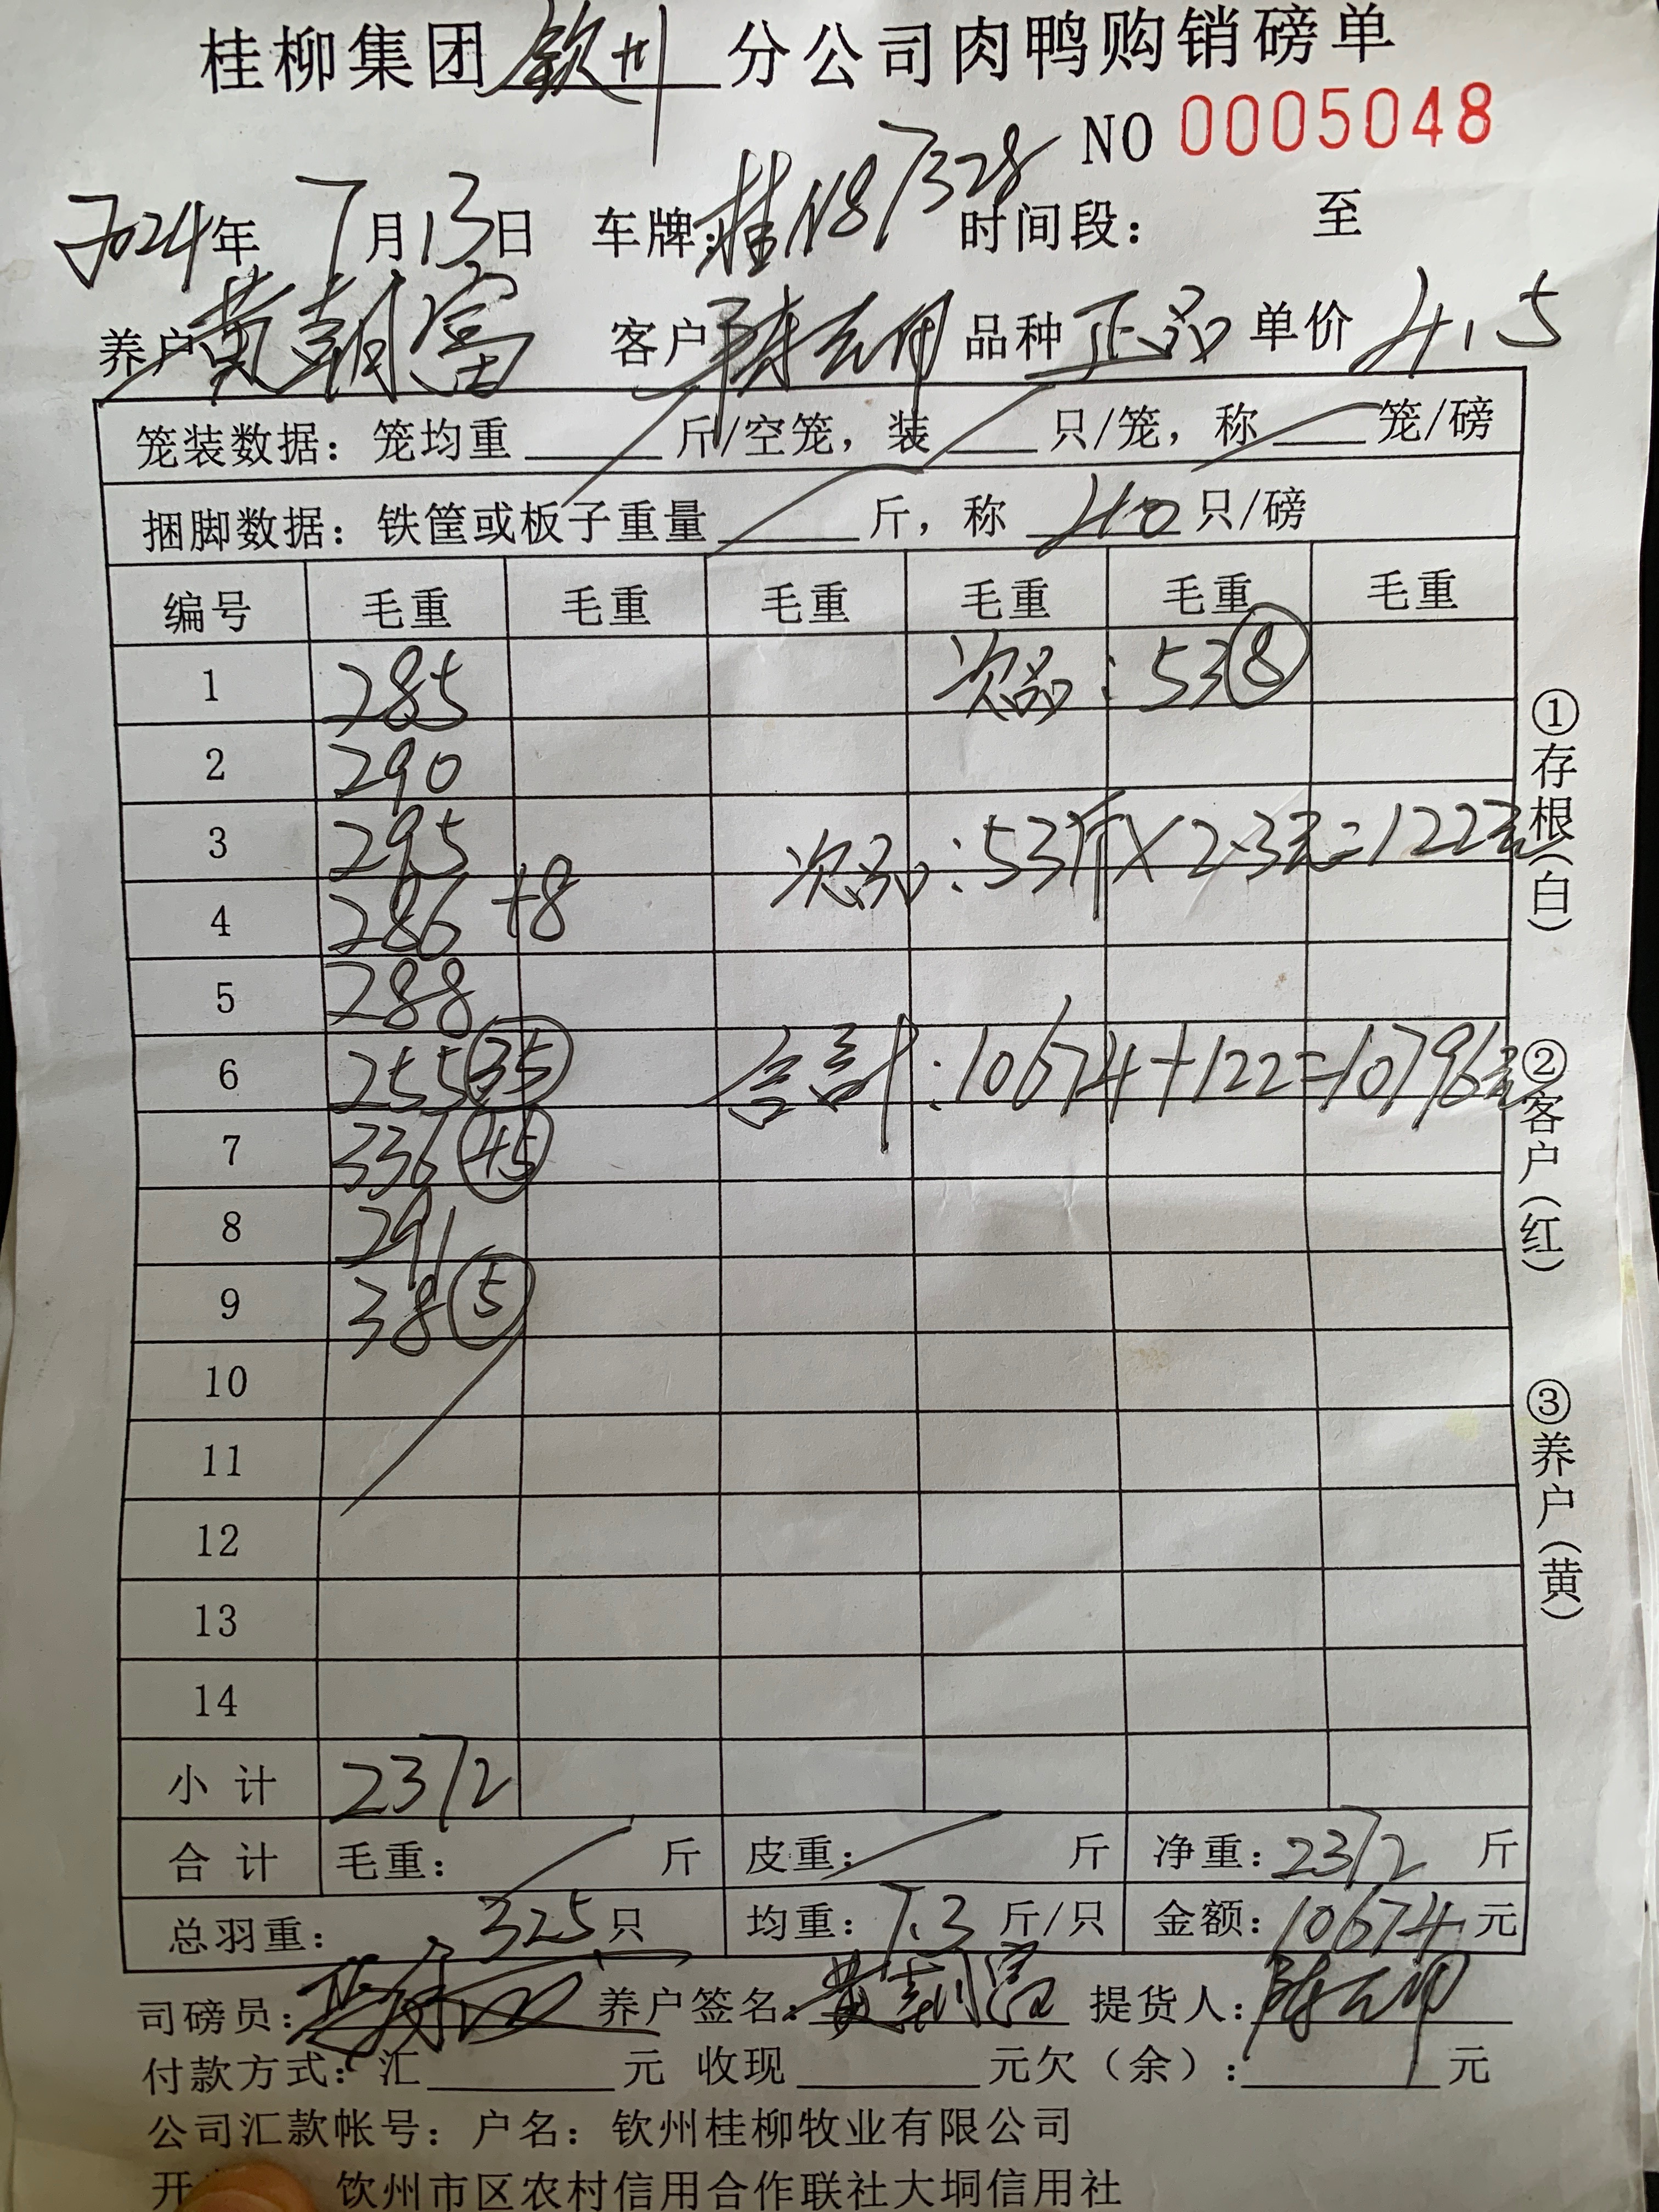 桂柳集团钦州分公司肉鸭购销磅单
NO 0005048
2024年 7月13日 车牌:桂N87328 时间段: 至
养户黄朝富 客户陈云帅 品种正品 单价4.5
笼装数据:笼均重 斤/空笼,装 只/笼,称 笼/磅
捆脚数据:铁筐或板子重量 斤,称 40 只/磅
编号 毛重 毛重 毛重 毛重 毛重 毛重
1 285 次品:53 8
2 290
3 295 次品:53斤×2.3元=122元
4 286 +8
5 288
6 255 35 合计:10674+122=10796元
7 336 45
8 291
9 38 5
10
11
12
13
14
小计 2372
合计 毛重: 斤 皮重: 斤 净重:2372 斤
总羽重: 325只 均重:7.3 斤/只 金额:10674元
司磅员: 养户签名:黄朝富 提货人:陈云帅
付款方式:汇 元 收现 元欠(余): 元
公司汇款帐号:户名:钦州桂柳牧业有限公司
开 钦州市区农村信用合作联社大垌信用社
①存根(白)
②客户(红)
③养户(黄)